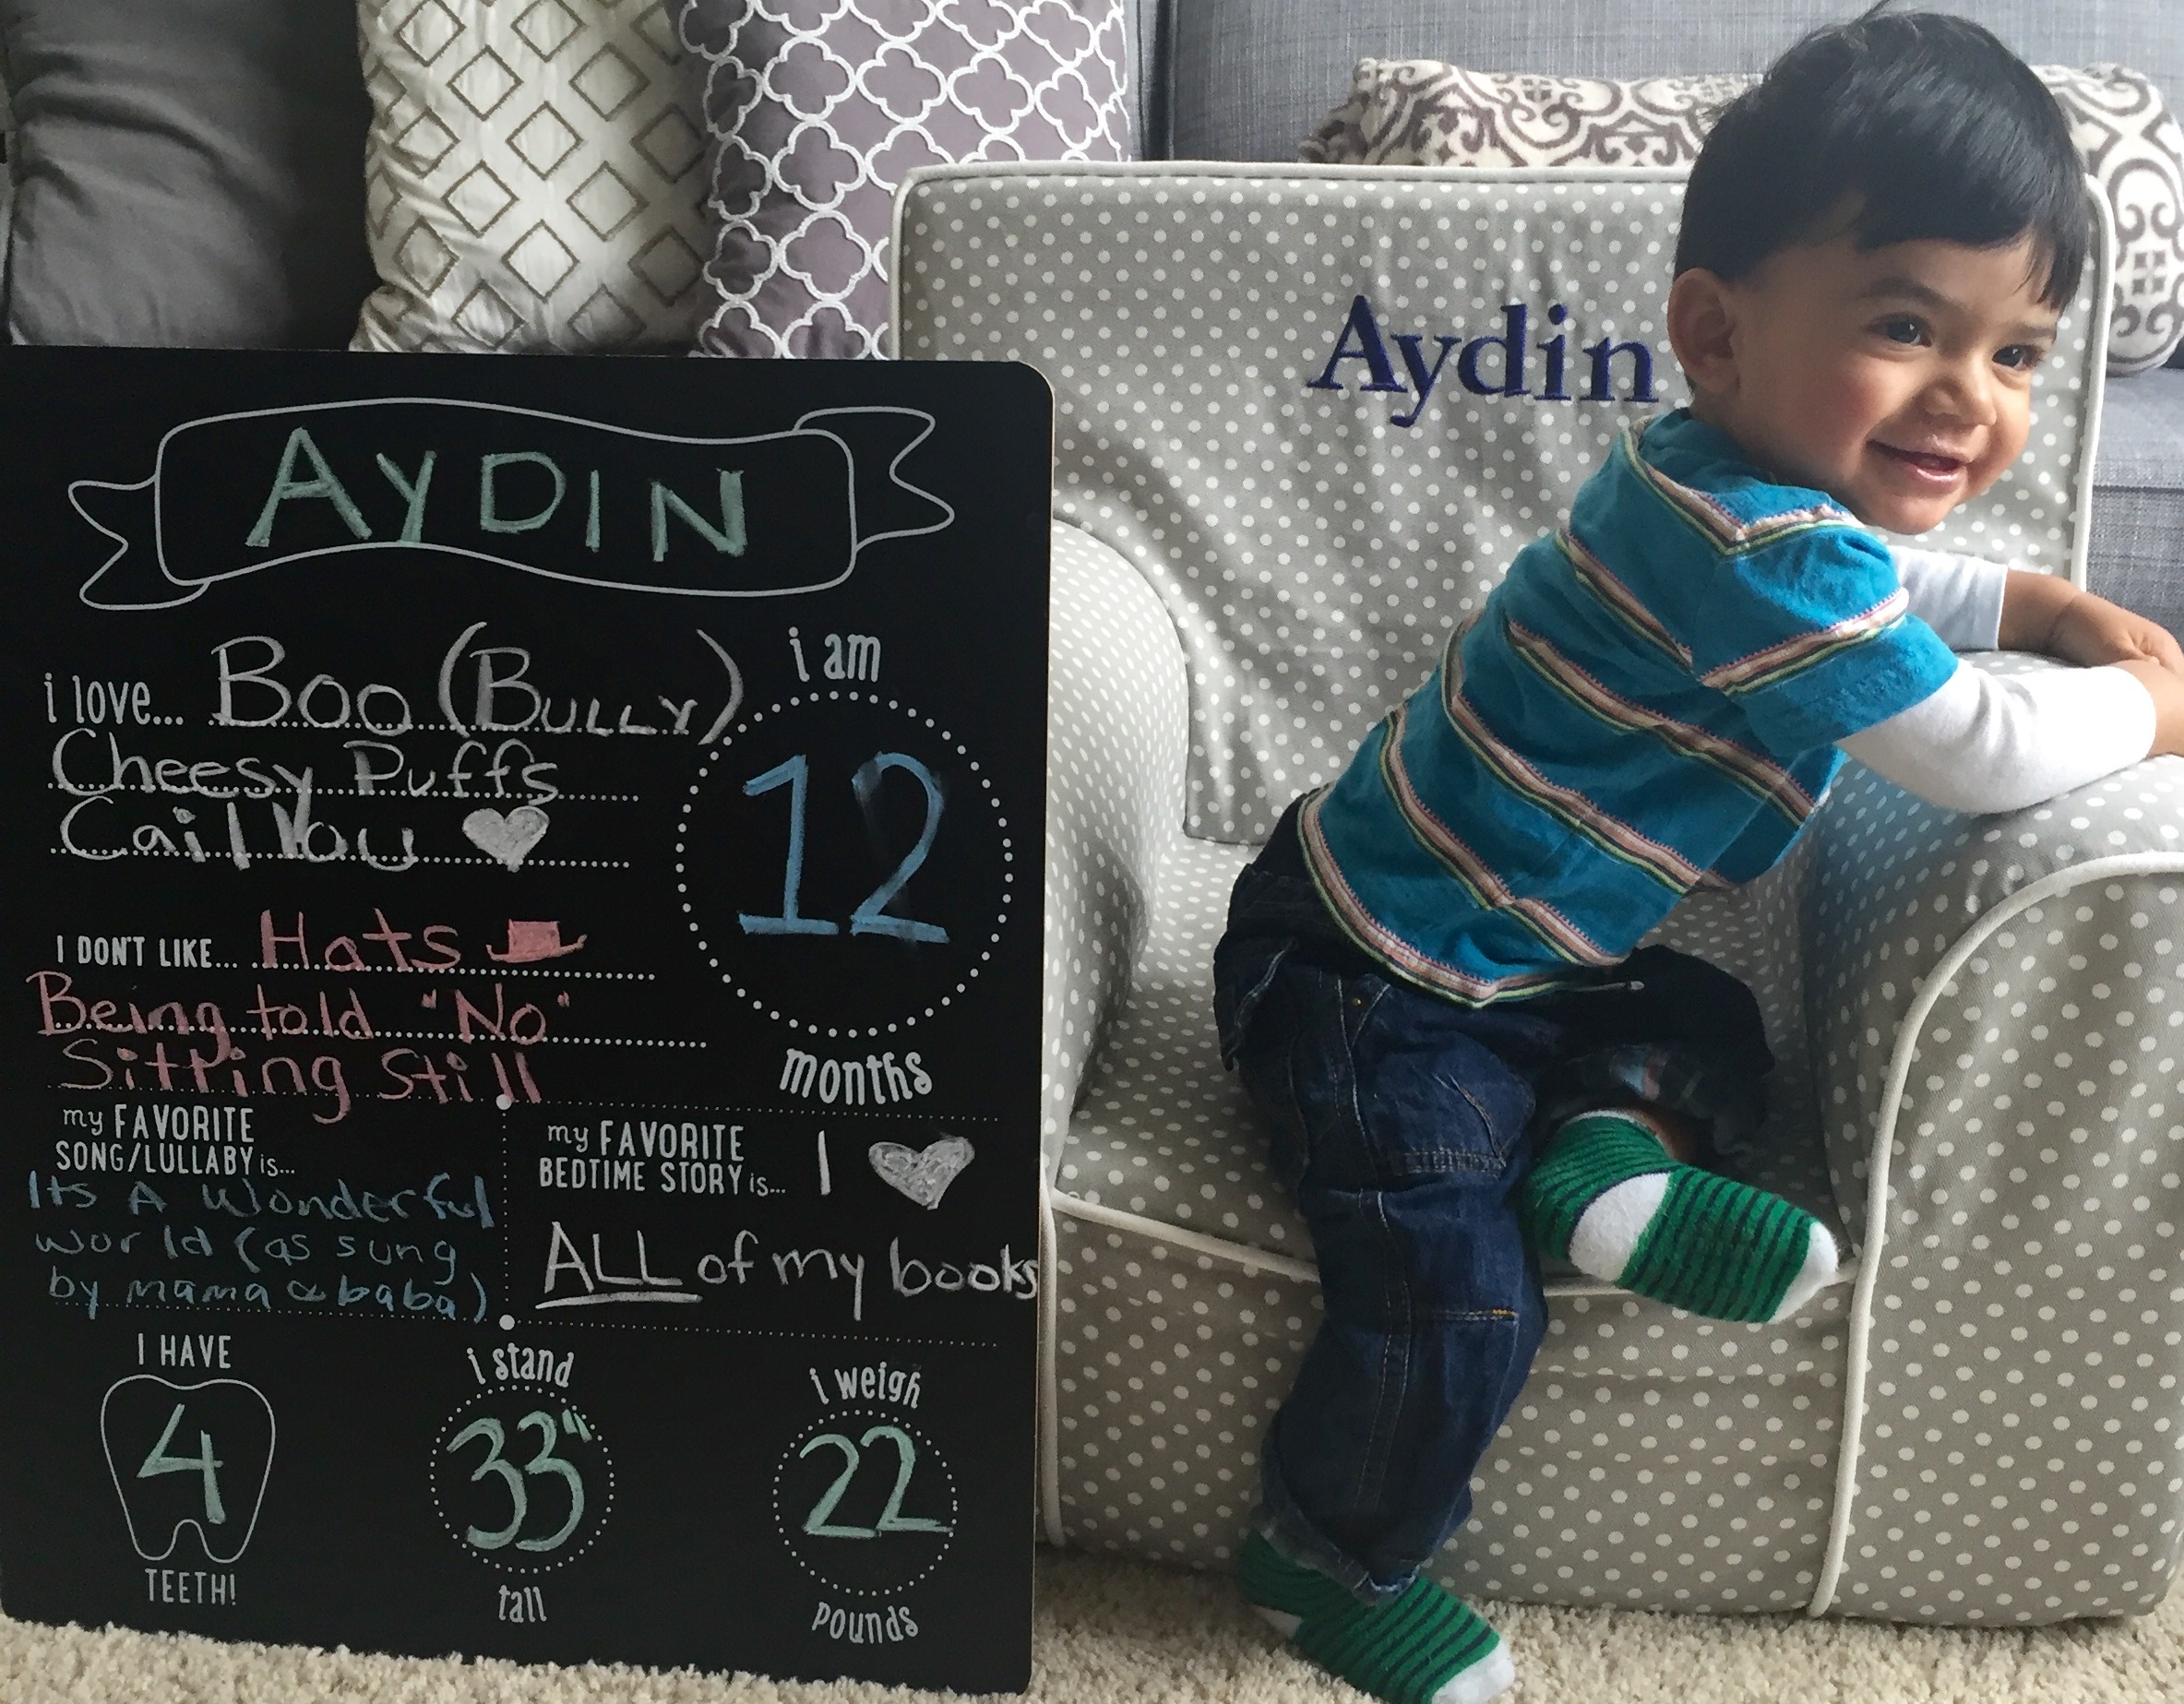 AYDIN
i love... Boo (Bully)
Cheesy Puffs
Caillou
i am
12
months
I DON'T LIKE... Hats
Being told "No"
Sitting Still
my FAVORITE
SONG/LULLABY is...
Its A Wonderful
world (as sung
by mama & baba)
my FAVORITE
BEDTIME STORY is... I
ALL of my books
I HAVE
4
TEETH!
i stand
33"
tall
i weigh
22
pounds
Aydin